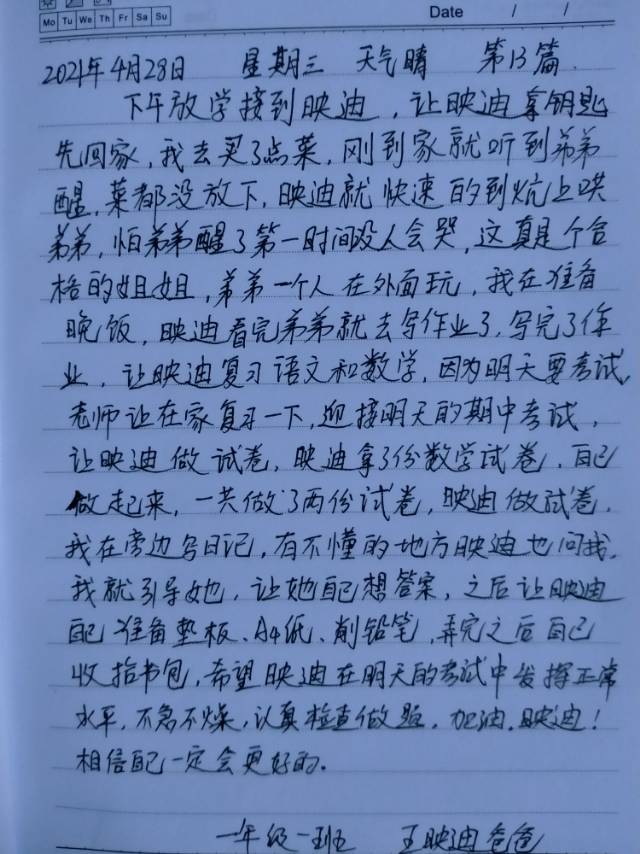 Mo Tu We Th Fr Sa Su
Date / /
2021年4月28日 星期三 天气晴 第13篇
下午放学接到映迪，让映迪拿钥匙
先回家，我去买了点菜，刚到家就听到弟弟
醒，菜都没放下，映迪就快速的到炕上哄
弟弟，怕弟弟醒了第一时间没人会哭，这真是个合
格的姐姐，弟弟一个人在外面玩，我在准备
晚饭，映迪看完弟弟就去写作业了，写完了作
业，让映迪复习语文和数学，因为明天要考试，
老师让在家复习一下，迎接明天的期中考试，
让映迪做试卷，映迪拿了份数学试卷，自己
做起来，一共做了两份试卷，映迪做试卷，
我在旁边写日记，有不懂的地方映迪也问我，
我就引导她，让她自己想答案，之后让映迪
自己准备垫板、A4纸、削铅笔，弄完之后自己
收拾书包，希望映迪在明天的考试中发挥正常
水平，不急不燥，认真检查做题，加油，映迪！
相信自己一定会更好的。
一年级一班 王映迪爸爸